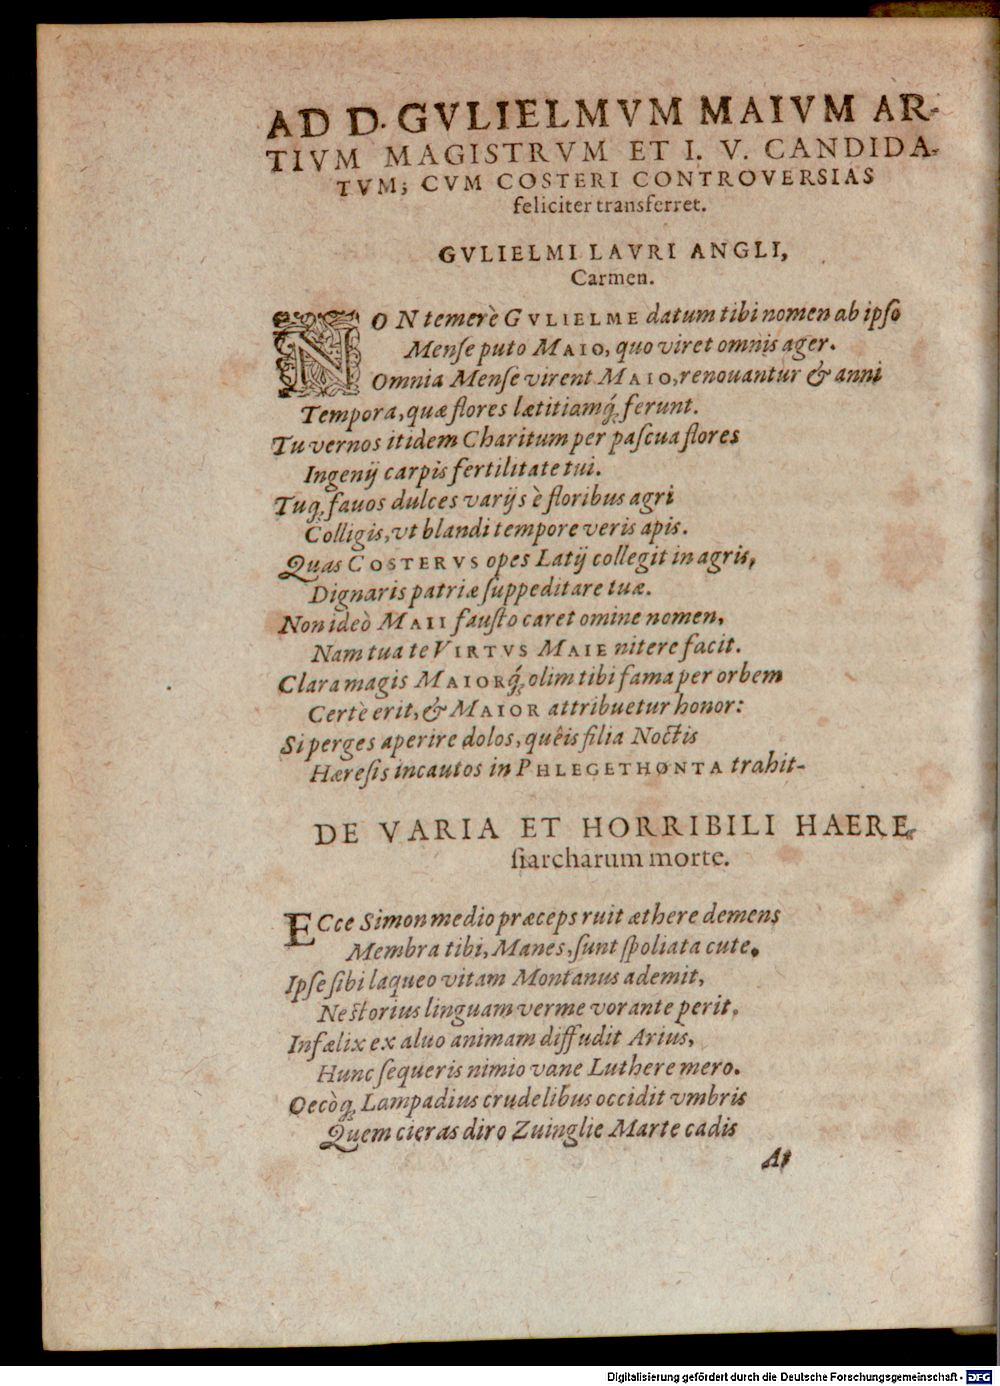 AD D. GVLIELMVM MAIVM AR-
TIVM MAGISTRVM ET I. V. CANDIDA-
TVM; CVM COSTERI CONTROVERSIAS
feliciter transferret.
GVLIELMI LAVRI ANGLI,
Carmen.
NON temerè GVLIELME datum tibi nomen ab ipſo
Menſe puto MAIO, quo viret omnis ager.
Omnia Menſe virent MAIO, renouantur & anni
Tempora, quæ flores lætitiamq́; ferunt.
Tu vernos itidem Charitum per paſcua flores
Ingenij carpis fertilitate tui.
Tuq; fauos dulces varijs è floribus agri
Colligis, vt blandi tempore veris apis.
Quas COSTERVS opes Latij collegit in agris,
Dignaris patriæ ſuppeditare tuæ.
Non ideò MAII fauſto caret omine nomen,
Nam tua te VIRTVS MAIE nitere facit.
Clara magis MAIORq́; olim tibi fama per orbem
Certè erit, & MAIOR attribuetur honor:
Si perges aperire dolos, quêis filia Noctis
Hæreſis incautos in PHLEGETHONTA trahit-
DE VARIA ET HORRIBILI HAERE-
ſiarcharum morte.
ECce Simon medio præceps ruit æthere demens
Membra tibi, Manes, ſunt ſpoliata cute.
Ipſe ſibi laqueo vitam Montanus ademit,
Neſtorius linguam verme vorante perit.
Infælix ex aluo animam diffudit Arius,
Hunc ſequeris nimio vane Luthere mero.
Oecòq; Lampadius crudelibus occidit vmbris
Quem cieras diro Zuinglie Marte cadis
At
Digitalisierung gefördert durch die Deutsche Forschungsgemeinschaft - DFG